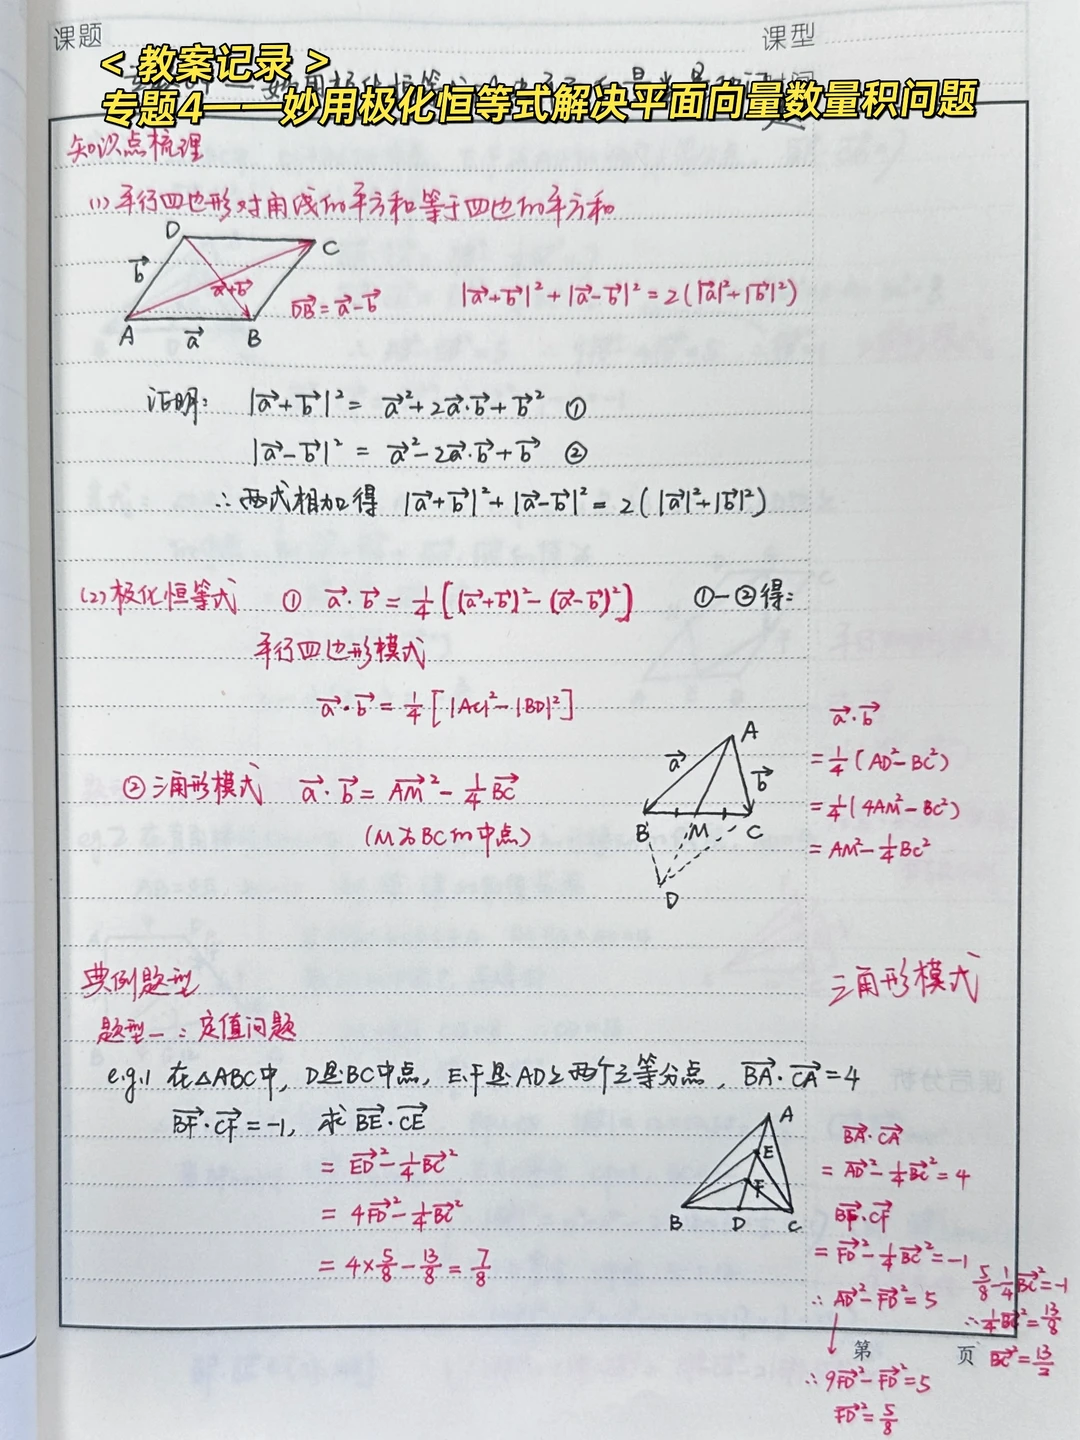 课题
课型
<教案记录>
专题4——妙用极化恒等式解决平面向量数量积问题
知识点梳理
(1) 平行四边形对角线的平方和等于四边的平方和
D
C
b⃗
a⃗+b⃗
A
a⃗
B
DB⃗=a⃗-b⃗
|a⃗+b⃗|²+|a⃗-b⃗|²=2(|a⃗|²+|b⃗|²)
证明: |a⃗+b⃗|²= a⃗²+2a⃗·b⃗+b⃗² ①
|a⃗-b⃗|² = a⃗²-2a⃗·b⃗+b⃗ ②
∴两式相加得 |a⃗+b⃗|²+|a⃗-b⃗|²=2(|a⃗|²+|b⃗|²)
(2) 极化恒等式 ① a⃗·b⃗=1/4[(a⃗+b⃗)²-(a⃗-b⃗)²] ①-②得:
平行四边形模式
a⃗·b⃗=1/4[|AC|²-|BD|²]
②三角形模式 a⃗·b⃗=AM⃗²-1/4BC⃗
(M为BC的中点)
A
a⃗
b⃗
B
M
C
D
a⃗·b⃗
=1/4(AD²-BC²)
=1/4(4AM²-BC²)
=AM²-1/4BC²
典例题型
三角形模式
题型一:定值问题
e.g.1 在△ABC中, D是BC中点, E.F是AD上两个三等分点, BA⃗·CA⃗=4
BF⃗·CF⃗=-1, 求 BE⃗·CE⃗
= ED⃗²-1/4BC⃗²
= 4FD⃗²-1/4BC⃗²
= 4×5/8-13/8=7/8
A
E
F
B
D
C
BA⃗·CA⃗
= AD⃗²-1/4BC⃗²=4
BF⃗·CF⃗
= FD⃗²-1/4BC⃗²=-1
∴AD⃗²-FD⃗²=5
∴9FD⃗²-FD⃗²=5
FD⃗²=5/8
5/8-1/4BC⃗²=-1
∴1/4BC⃗²=13/8
BC⃗²=13/2
第 页